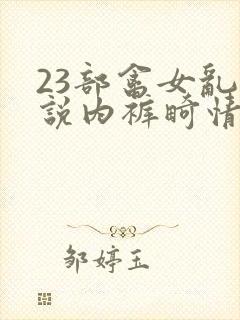 23部畜女乱
說内裤畸情
邹婷玉